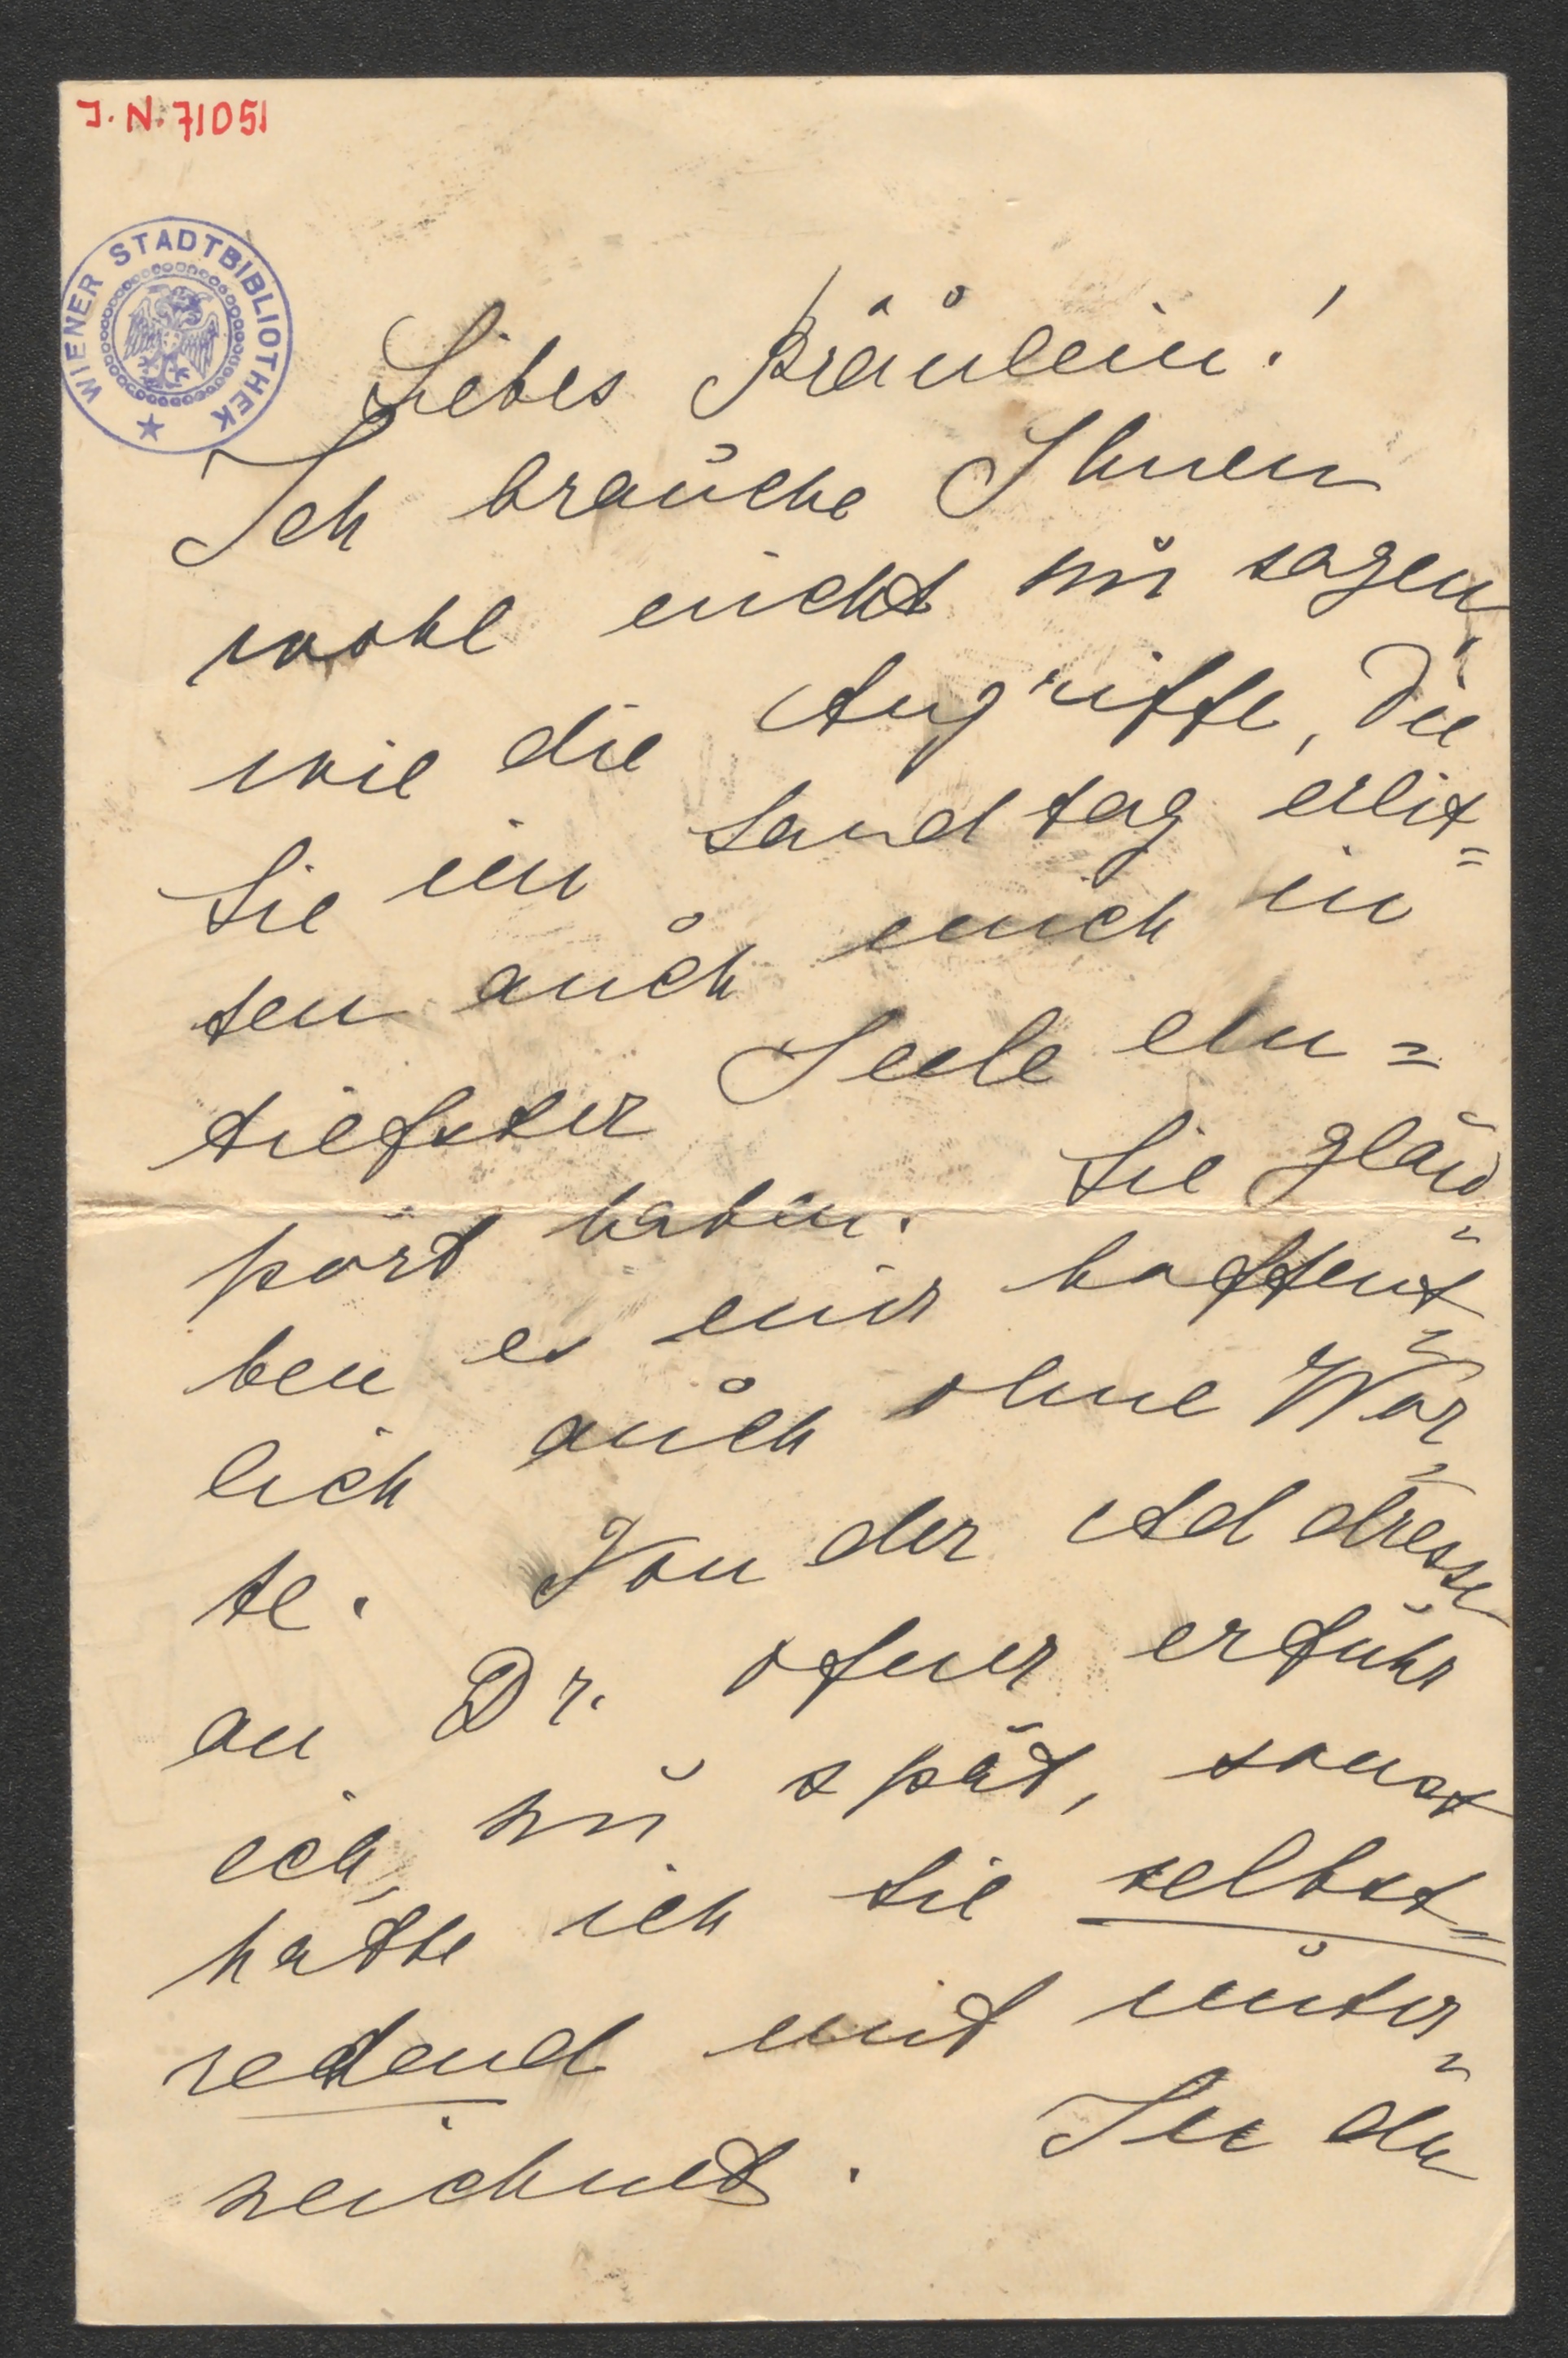 J. N. 71051
WIENER STADTBIBLIOTHEK
Liebes Fräulein!
Ich brauche Ihnen
wohl nicht zu sagen,
wie die Angriffe, die
Sie im Landtag erlit=
ten auch mich in
tiefster Seele em=
pört haben. Sie glau=
ben es mir hoffent=
lich auch ohne Wor=
te. Von der Addresse
an Dr. Ofner erfuhr
ich, zu spät, sonst
hätte ich sie selbst=
redend mit unter=
zeichnet. In den